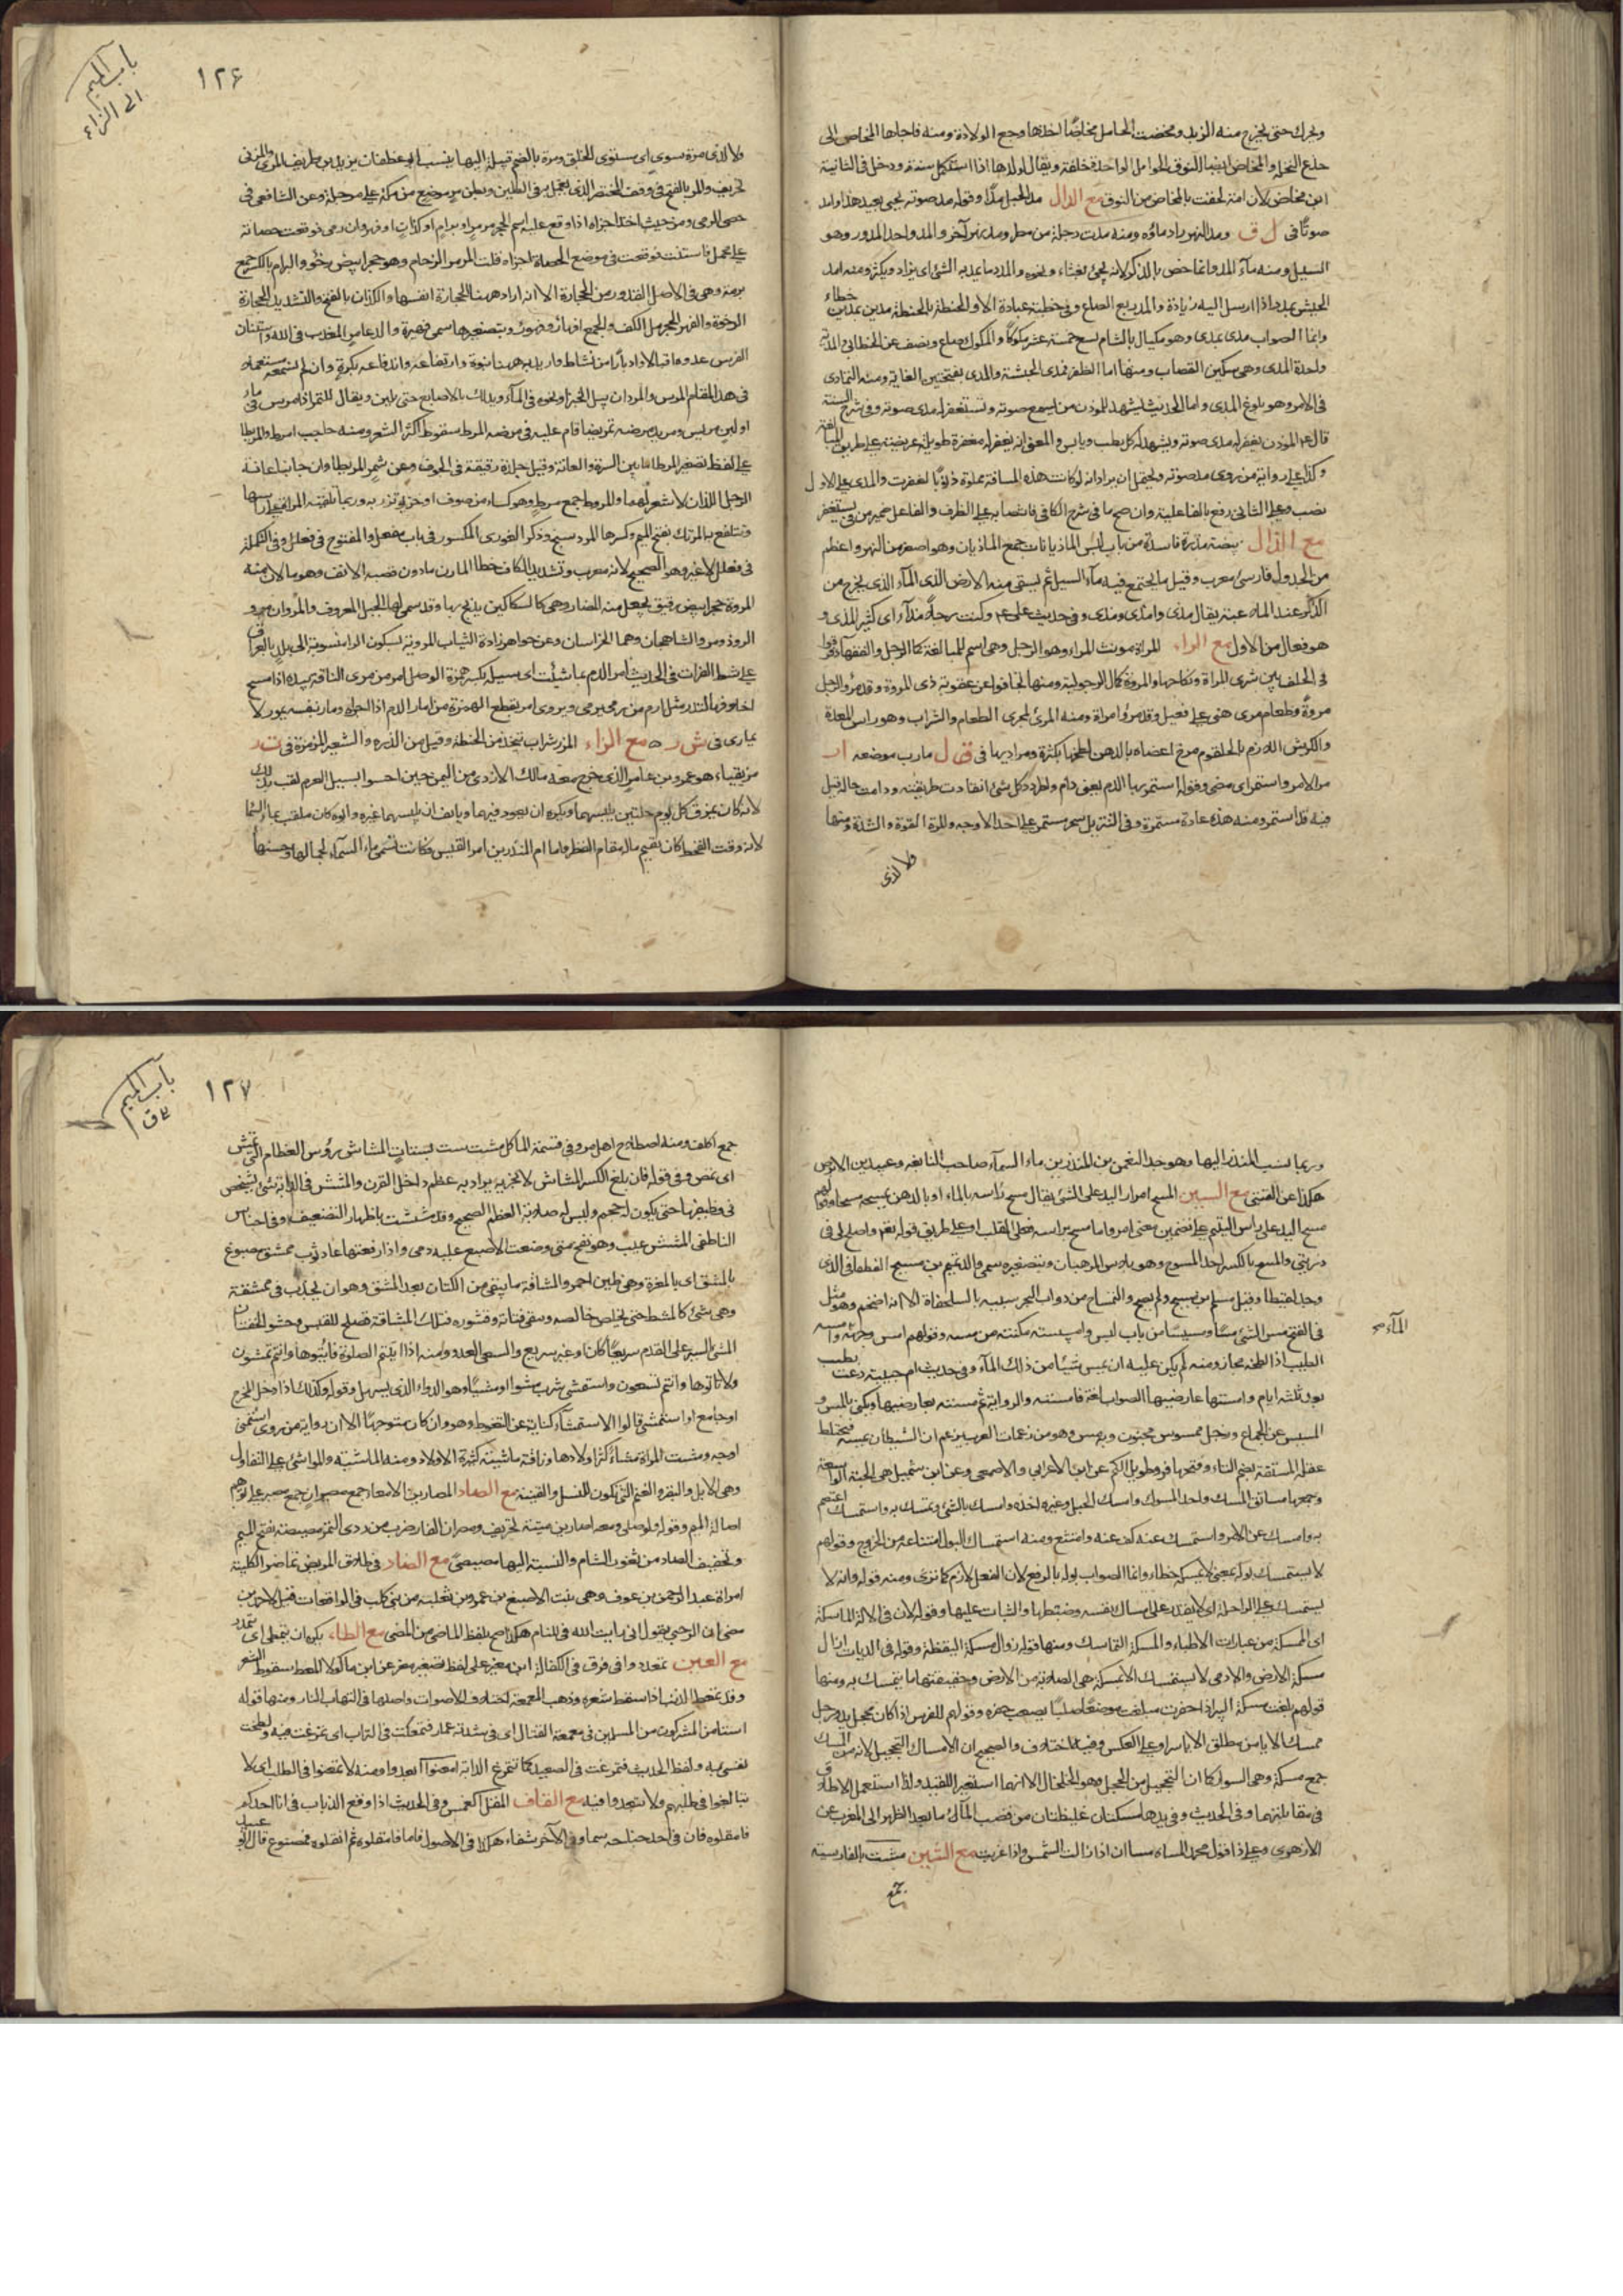 ويحرك حتى يخرج منه الزبد ومخضت الحامل مخاضا اخذها وجع الولادة ومنه فاجاها المخاض الى
جذع النخلة والمخاض ايضا النوق الحوامل الواحدة خلفة ويقال لولدها اذا استكمل سنة ودخل فى الثانية
ابن مخاض لان امه لحقت بالمخاض من النوق مع الدال مد الحبل مدا وقوله مد صوته
صوتا فى ل ف ومد النهر زاد ماؤه ومنه مدت دجلة من مطر ومده نهر آخر والمد واحد المدود وهو
السيل ومنه مآء المد وانما خص بالذكر لانه يجئ بغثاء ونحوه والمدد ما يمد به الشئ اى يزاد ويكثر ومنه امد
الجيش بمدد اذا ارسل اليه زيادة والمد ربع الصاع وفى خطبته عبادة الا والحنطة بالحنطة مدين بمدين خطاء
وانما الصواب مدى بمدى وهو مكيال بالشام يسع خمسة عشر مكوكا والمكوك صاع ونصف عن الخطابى
واحدة المدى وهى سكين القصاب ومنها اما الظفر فمدى الحبشة والمدى بفتحتين الغاية ومنه التمادى
فى الامر وهو بلوغ المدى واما الحديث ليشهد للمؤذن من يسمع صوته ونستغفر له مدى صوته وفى شرح السنة
قال المؤذن يغفر له مدى صوته ويشهد له كل رطب ويابس والمعنى انه يغفر له مغفرة طويلة عريضة على طريق المبالغة
وكذا على رواية من روى مد صوته ويحتمل ان يراد انه لو كانت هذه المسافة مملوة ذنوبا لغفرت والمدى على الاول
نصب وعلى الثانى رفع بالفاعلية وان صح ما فى شرح الكافى فانتصابه على الظرف والفاعل ضمير من فى يستغفر
مع الذال بيضة مذرة فاسدة من باب لبس الماذيانات جمع الماذيان وهو اصغر من النهر واعظم
من الجدول فارسى معرب وقيل ما يجتمع فيه مآء السيل ثم يسقى منه الارض الذى المآء الذى يخرج من
الذكر عند الملاعبة يقال مذى وامذى ومذى وفى حديث على وكنت رجلا مذآء اى كثير المذى و
هو فعال من الاول مع الراء المراة مؤنث المرء وهو الرجل وهى اسم للبالغة كالرجل والفقهآء فرقوا
فى الحلف بين شرى المراة ونكاحها والمروة كمال الرجولية ومنها تجافوا عن عقوبة ذى المروة وقد مرؤ الرجل
مروة وطعام مرى هنى على فعيل وقد مرؤ امراة ومنه المرئ لمجرى الطعام والشراب وهو راس المعدة
والكرش اللازم بالحلقوم مرخ اعضاه بالدهن لطخها بكثرة ومرادبها فى ق ل مارب موضعه ار
مر الامر واستمر اى مضى وقوله استمر بها الدم يعنى دام واطرد وكل شئ انقادت طريقته ودامت حاله قيل
فيه قد استمر ومنه هذه عادة مستمرة وفى التنزيل سحر مستمر على احد الاوجه والمرة القوة والشدة ومنها
ولا لذى
باب الميم
الى الزاء
١٢۶
ولا لذى مرة سوى اى مستوى الخلق ومرة بالضم قبيلة اليها ينسب ابو غطفان بن يزيد بن طريف المرى والمزنى
تحريف والمر بالفتح فى وقف المختصر الذى يعمل به فى الطين وبطن مر موضع من مكة على مرحلة وعن الشافعى فى
حصى الرمى ومن حيث اخذ اجزاه اذا وقع عليه اسم الحجر مرمر او برام او كذان او فهر وان رمى فوقعت حصاته
على محمل فاستنت فوقعت فى موضع الحصاة اجزاه قلت المرمر الرخام وهو حجر ابيض رخو والبرام بالكسر جمع
برمة وهى فى الاصل القدور من الحجارة الا انه اراد ههنا الحجارة انفسها والكذان بالفتح والتشديد الحجارة
الرخوة والفهر الحجر ملء الكف والجمع افهار وفهور وبتصغيرها سمى فهيرة والد عامر المعذب فى الله واستنان
الفرس عدوه اقبالا وادبارا من نشاط واريد به ههنا نبوة وارتفاعه واندفاعه بكرة وان لم نسمعه مستعملا
فى هذا المقام المرس والمردان يبل الخبز او نحوه فى المآء ويدلك بالاصابع حتى يلين ويقال للتمر اذا مرس فى مآء
او لبن مريس ومريد مرضه تمريضا قام عليه فى مرضه المرط سقوط اكثر الشعر ومنه حاجب امرط والمريطا
على لفظ تصغير المرطا ما بين السرة والعانة وقيل جلدة رقيقة فى الجوف وعن شمر المريطاوان جانبا عانة
الرجل اللذان لا شعر لهما والمروط جمع مرط وهو كساء من صوف او خز يؤتزر به وربما تلقيه المراة على راسها
وتتلفع به المرتك بفتح الميم وكسرها المردسنج وذكر الغورى المكسور فى باب مفعل والمفتوح فى فعلل وفى التكملة
فى فعلل لا غير وهو الصحيح لانه معرب وتشديد الكاف خطا المارن ما دون قصبة الانف وهو ما لان منه
المروة حجر ابيض رقيق يجعل منه المضار وهى كالسكاكين يذبح بها وقد سمى بها الجبل المعروف والمروان مرو
الروذ ومرو الشاهجان وهما بخراسان وعن خواهر زاده الثياب المروية بسكون الراء منسوبة الى بلد بالعراق
على شط الفرات فى الحديث امر الدم بما شئت اى سيله بكسر همزة الوصل امر من مرى الناقة بيده اذا مسح
اخلافها لتدر مثل ارم من رمى يرمى ويروى امر بقطع الهمزة من امار الدم اذا اجراه ومار بنفسه يمور لا
يمارى فى ش ر ه مع الزاء المزر شراب يتخذ من الحنطة وقيل من الذره والشعير المزمزة فى ت ر
مزيقياء هو عمرو بن عامر الذى خرج معه مالك الازدى من اليمن حين احسوا بسيل العرم لقب بذلك
لانه كان يمزق كل يوم حلتين يلبسهما ويكره ان يعود فيهما ويانف ان يلبسهما غيره وابوه كان ملقب بماء السما
لانه وقت القحط كان يقيم ماله مقام القطر واما ام المنذر بن امر القيس فكانت تسمى ماء السمآء لجمالها وحسنها
وربما نسب المنذر اليها وهو جد النعمن بن المنذر بن ماء السمآء صاحب النابغه وعبيد بن الابرص
هكذا عن القتبى مع السين المسح امرار اليد على الشئ يقال مسح راسه بالماء او بالدهن يمسحه مسحا وقولهم
مسح اليد على راس اليتيم على تضمين معنى امر واما مسح براسه فعلى القلب او على طريق قوله تعالى واصلح لى فى
ذريتى والمسح بالكسر احد المسوح وهو لباس الرهبان وبتصغيره سمى والد تميم بن مسيح الغطفانى الذى
وجد لقيطا وقيل مسلم بن مسيح ولم يصح والتمساح من دواب البحر شبيه بالسلحفاة الا انه اضخم وهو مثل
فى القبح مس الشئ مسا ومسيسا من باب لبس وامسسته مكنته من مسه وقولهم امس وجهه المآء
الطيب اذا لطخه مجاز ومنه لم يكن عليه ان يمس شيئا من ذلك المآء وفى حديث ام حبيبة دعت بطيب
بعد ثلثة ايام وامستها عارضيها الصواب لغة فامسته والرواية ثم مسته بعارضيها ويكنى بالمس و
المسيس عن الجماع ورجل ممسوس مجنون وبه مس وهو من زعمات العرب يزعم ان الشيطان يمسه فيختلط
عقله المستقة بضم التاء وفتحها فرو طويل الكم عن ابن الاعرابى والاصمعى وعن ابن شميل هى الجبة الواسعة
وجمعها مساتق المسك واحد المسوك وامسك الحبل وغيره اخذه وامسك بالشئ وتمسك به واستمسك اعتصم
به وامسك عن الامر واستمسك عنه كف عنه وامتنع ومنه استمساك البول امتناعه من الخروج وقولهم
لا يستمسك بوله بمعنى لا يمسكه خطاء وانما الصواب بوله بالرفع لان الفعل لازم كما ترى ومنه قوله وانه لا
يستمسك على الراحلة اى لا يقدر على امساك نفسه وضبطها والثبات عليها وقوله لان فى الالة الماسكة
اى الممسكة من عبارات الاطباء والمسكة التماسك ومنها قوله زوال مسكة اليقظة وقوله فى الديات ازال
مسكة الارض والادمى لا يستمسك الا بمسكة هى الصلابة من الارض وحقيقتها ما يتمسك به ومنها
قولهم بلغت مسكة البير اذا حفرت فبلغت موضعا صلبا يصعب حفره وقولهم للفرس اذا كان محجل يد ورجل
ممسك الايامن مطلق الاياسر او على العكس وفيه اختلاف والصحيح ان الامساك التحجيل لانه من المسك
جمع مسكة وهى السوار كما ان التحجيل من الحجل وهو الخلخال الا انهما استعير اللقيد ولذا استعمل الاطلاق
فى مقابلتهما وفى الحديث وفى يدها مسكتان غليظتان من قصب المآئ ما بعد الظهر الى المغرب عن
الازهرى وعلى ذا قول محمد المساء مساان اذا زالت الشمس واذا غربت مع الشين مشت بالفارسية
جمع
باب الميم
ق
١٢٧
جمع اكف ومنه اصطلاح اهل مرو فى قسمة الماء كل مشت ست بستات المشاش رؤس العظام التى تمش
اى تمص وفى قوله فان بلغ الكسر المشاش لا تجزيه يراد به عظم داخل القرن والمشش فى الدابة شئ يشخص
فى وظيفها حتى يكون له حجم وليس له صلابة العظم الصحيح وقد مششت باظهار التضعيف وفى اجناس
الناطفى المشش عيب وهو نفخ متى وضعت الاصبع عليه دمى واذا رفعتها عاد ثوب ممشق مصبوغ
بالمشق اى بالمغرة وهى طين احمر والمشاقة ما يبقى من الكتان بعد المشق وهو ان يجذب فى ممشقة
وهى شئ كالمشط حتى يخلص خالصه ويبقى فتاته وقشوره فتلك المشاقة تصلح للقبس وحشو الخفتان
المشى السير على القدم سريعا كان او غير سريع والسعى العدو ومنه اذا اتيتم الصلوة فاتوها وانتم تمشون
ولا تاتوها وانتم تسعون واستمشى شرب مشوا او مشيا وهو الدواء الذى يسهل وقوله وكذلك اذا دخل المخرج
او جامع او استمشى قالوا الاستمشآء كناية عن التغوط وهو وان كان متوجها الا ان رواية من روى استمنى
اوجه ومشت المراة مشاء كثر اولادها وناقة ماشية كثيرة الاولاد ومنه الماشية والمواشى على التفاول
وهى الابل والبقر والغنم التى تكون للنسل والقنية مع الصاد المصارين الامعاء جمع مصران جمع مصير على توهم
اصالة الميم وقوله ولو صلى ومعه مصارين ميتة تحريف ومصران الفار ضرب من ردى التمر مصيصة بفتح الميم
وتخفيف الصاد من ثغور الشام والنسبة اليها مصيصى مع الضاد فى طلاق المريض تماضر الكلبية
امراة عبد الرحمن بن عوف وهى بنت الاصبغ بن عمرو بن ثعلبة من بنى كلب
مع الطاء يكره ان يتمطى اى يتمدد
مع العين تمعدد وافى فرق فى الكفالة ابن معيز على لفظ تصغير معز عن ابن ماكولا المعط سقوط الشعر
وقد تمعط الذئب اذا سقط شعره وذهب المعمعة اختلاف الاصوات واصلها فى التهاب النار ومنها قوله
استامن المشركون من المسلمين فى معمعة القتال اى فى شدته عمار فتمعكت فى التراب اى تمرغت فيه ولطخت
نفسى به ولفظ الحديث فتمرغت فى الصعيد كما تتمرغ الدابة امعنوا ابعدوا ومنه لا تمعنوا فى الطلب اى لا
تبالغوا فى طلبهم ولا تبعدوا فيه مع القاف المقل الغمس وفى الحديث اذا وقع الذباب فى اناء احدكم
فامقلوه فان فى احد جناحيه سما وفى الآخر شفاء هكذا فى الاصول فاما فامقلوه ثم انقلوه فمصنوع قال ابو عبيد